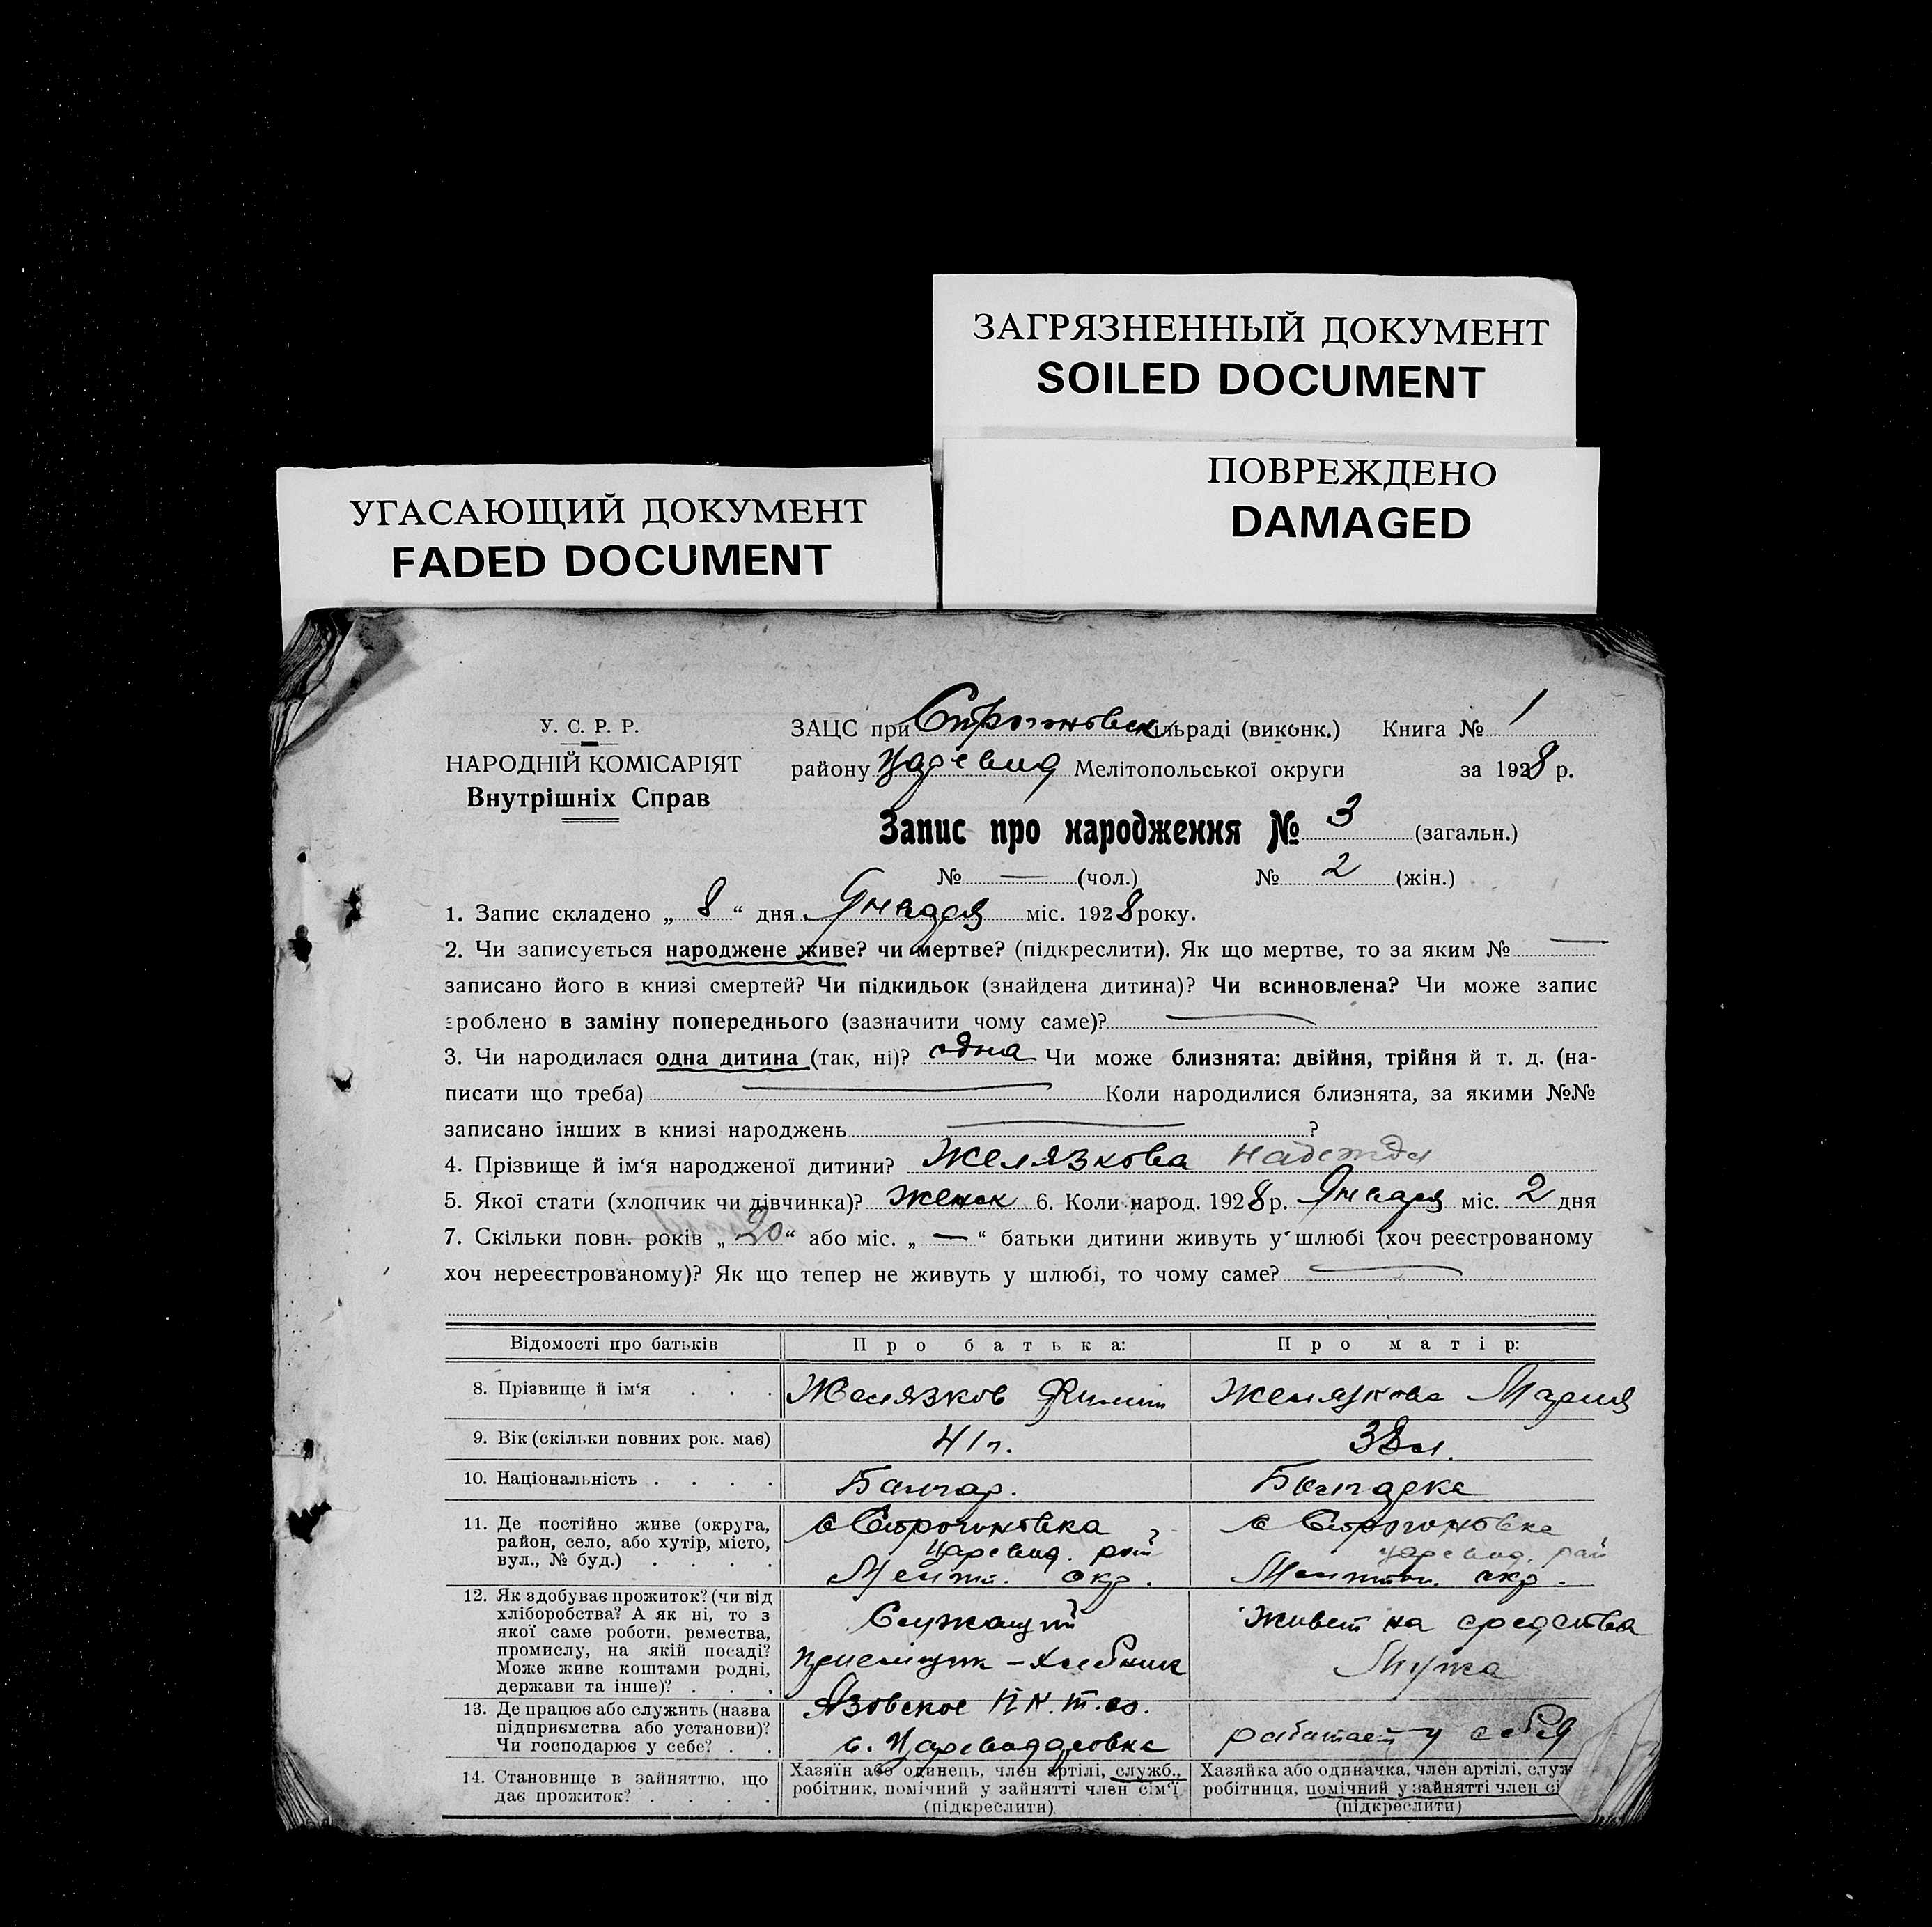 ЗАГРЯЗНЕННЫЙ ДОКУМЕНТ
SOILED DOCUMENT
ПОВРЕЖДЕНО
DAMAGED
УГАСАЮЩИЙ ДОКУМЕНТ
FADED DOCUMENT
У. С. Р. Р.
НАРОДНІЙ КОМІСАРІЯТ
Внутрішніх Справ
ЗАЦС при Строгоновск ільраді (виконк.) Книга № 1
району Царевид Мелітопольської округи за 1928 р.
Запис про народження № 3 (загальн.)
№ — (чол.) № 2 (жін.)
1. Запис складено „ 8 “ дня Января міс. 1928 року.
2. Чи записується народжене живе? чи мертве? (підкреслити). Як що мертве, то за яким № —
записано його в книзі смертей? Чи підкидьок (знайдена дитина)? Чи всиновлена? Чи може запис
зроблено в заміну попереднього (зазначити чому саме)? —
3. Чи народилася одна дитина (так, ні)? одна Чи може близнята: двійня, трійня й т. д. (на-
писати що треба) — Коли народилися близнята, за якими №№
записано інших в книзі народжень — ?
4. Прізвище й ім‘я народженої дитини? Желязкова Надежда
5. Якої стати (хлопчик чи дівчинка)? Женск 6. Коли народ. 1928 р. Января міс. 2 дня
7. Скільки повн. років „ 20 “ або міс. „ — “ батьки дитини живуть у шлюбі (хоч реєстрованому
хоч нереєстрованому)? Як що тепер не живуть у шлюбі, то чому саме? —
Відомості про батьків Про батька: Про матір:
8. Прізвище й ім‘я . . . Желязков Филип Желязкова Мария
9. Вік (скільки повних рок. має) 41 г. 38 л.
10. Національність . . . . Болгар. Болгарка
11. Де постійно живе (округа, район, село, або хутір, місто, вул., № буд.) . . . .
с Строгоновка
Царевид. рай
Мелит. окр.
с Строгоновка
Царевид. рай
Мелитоп. окр.
12. Як здобуває прожиток? (чи від хліборобства? А як ні, то з якої саме роботи, ремества, промислу, на якій посаді? Може живе коштами родні, держави та інше)? . . .
Служащий
приемщик-хлебник
Живет на средства
Мужа
13. Де працює або служить (назва підприємства або установи)? Чи господарює у себе? . .
Азовское
с. Царевидаровка
работает у себя
14. Становище в зайняттю, що дає прожиток? . . . .
Хазяїн або одинець, член артілі, служб.,
робітник, помічний у зайнятті член сім‘ї
(підкреслити)
Хазяйка або одиначка, член артілі, служ
робітниця, помічний у зайнятті член сі
(підкреслити)